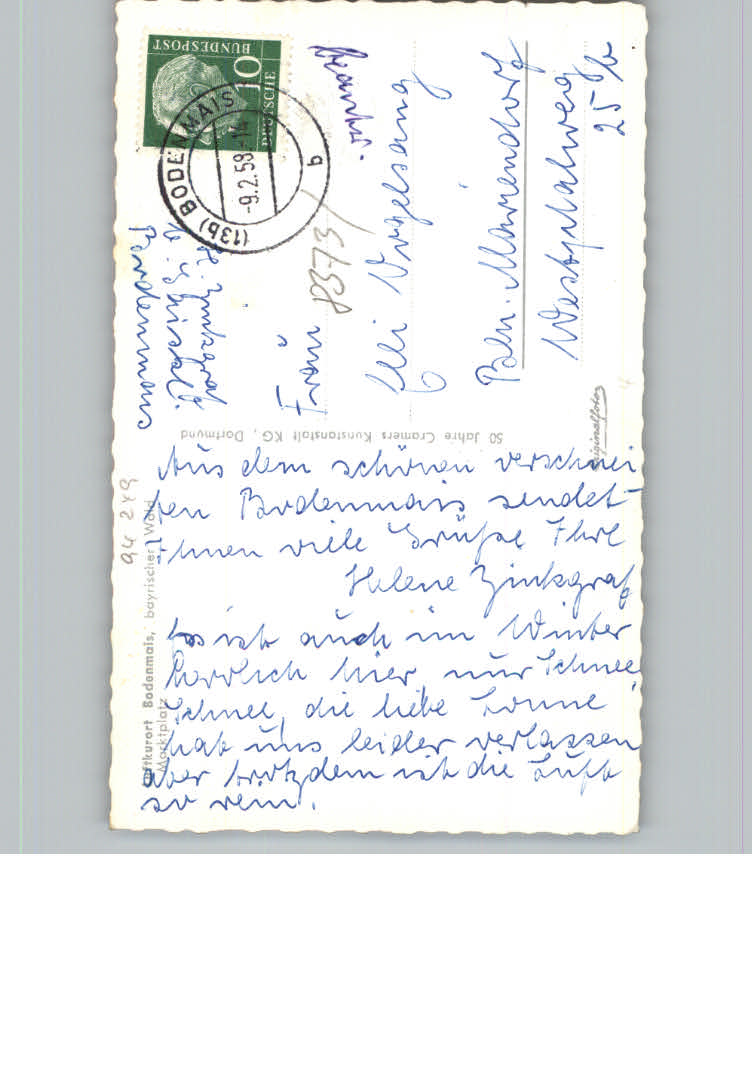 Aus dem schönen verschnei
ten Bodenmais sendet
Ihnen viele Grüße Ihre
Helene Zinkgraf
Es ist auch im Winter
herrlich hier, nur Schnee,
Schnee, die liebe Sonne
hat uns leider verlassen
aber trotzdem ist die Luft
so rein.
Luftkurort Bodenmais, bayrischer Wald
Marktplatz
94 249
50 Jahre Cramers Kunstanstalt KG, Dortmund
Originalfoto
DEUTSCHE
BUNDESPOST
10
(13b) BODENMAIS
-9.2.59.-14
b
H. Zinkgraf
Bodenmais
Frau
Elli Vogelsang
Bln. Mariendorf
Westphalweg
25 b